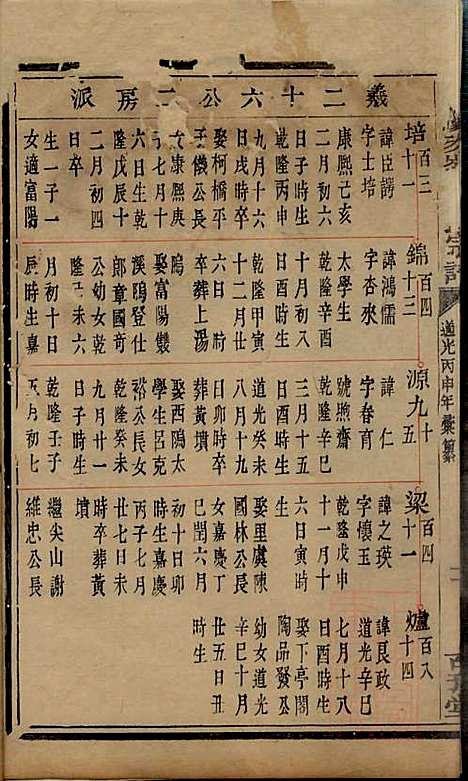 羲二十六公二房派
培百三
十一
諱臣謂
字士培
康熙己亥
二月初六
日子時生
乾隆丙申
九月十六
日戌時卒
娶柯橋平
王儀公長
女康熙庚
子七月十
六日生乾
隆戊辰十
二月初四
日卒
生一子一
女適富陽
錦百四
十三
諱鴻儒
字杏來
太學生
乾隆辛酉
十月初八
日酉時生
乾隆甲寅
十二月廿
卒葬上湯
塢
娶富陽
溪鴻登仕
郎章國奇
公幼女乾
隆 未六
月初十日
辰時生嘉
源九十
五
諱仁
字春育
號煦齋
乾隆辛巳
三月十五
日酉時生
道光癸未
八月十九
日卯時卒
葬黃墳
娶酉鴻太
學生呂克
裕公長女
乾隆癸未
九月廿一
日子時生
乾隆壬子
五月初七
梁百四
十一
諱之瑛
字懷玉
乾隆戊申
十一月十
六日寅時
生
娶里虞陳
國林公長
女嘉慶丁
巳閏六月
初十日卯
時生嘉慶
丙子七月
廿七日未
時卒葬黃
墳
繼尖山謝
維忠公長
爐百八
十四
諱長政
道光辛巳
七月十八
日酉時生
娶下亭閣
陶品發公
幼女道光
辛巳十月
廿五日丑
時生
道光丙申年彙纂